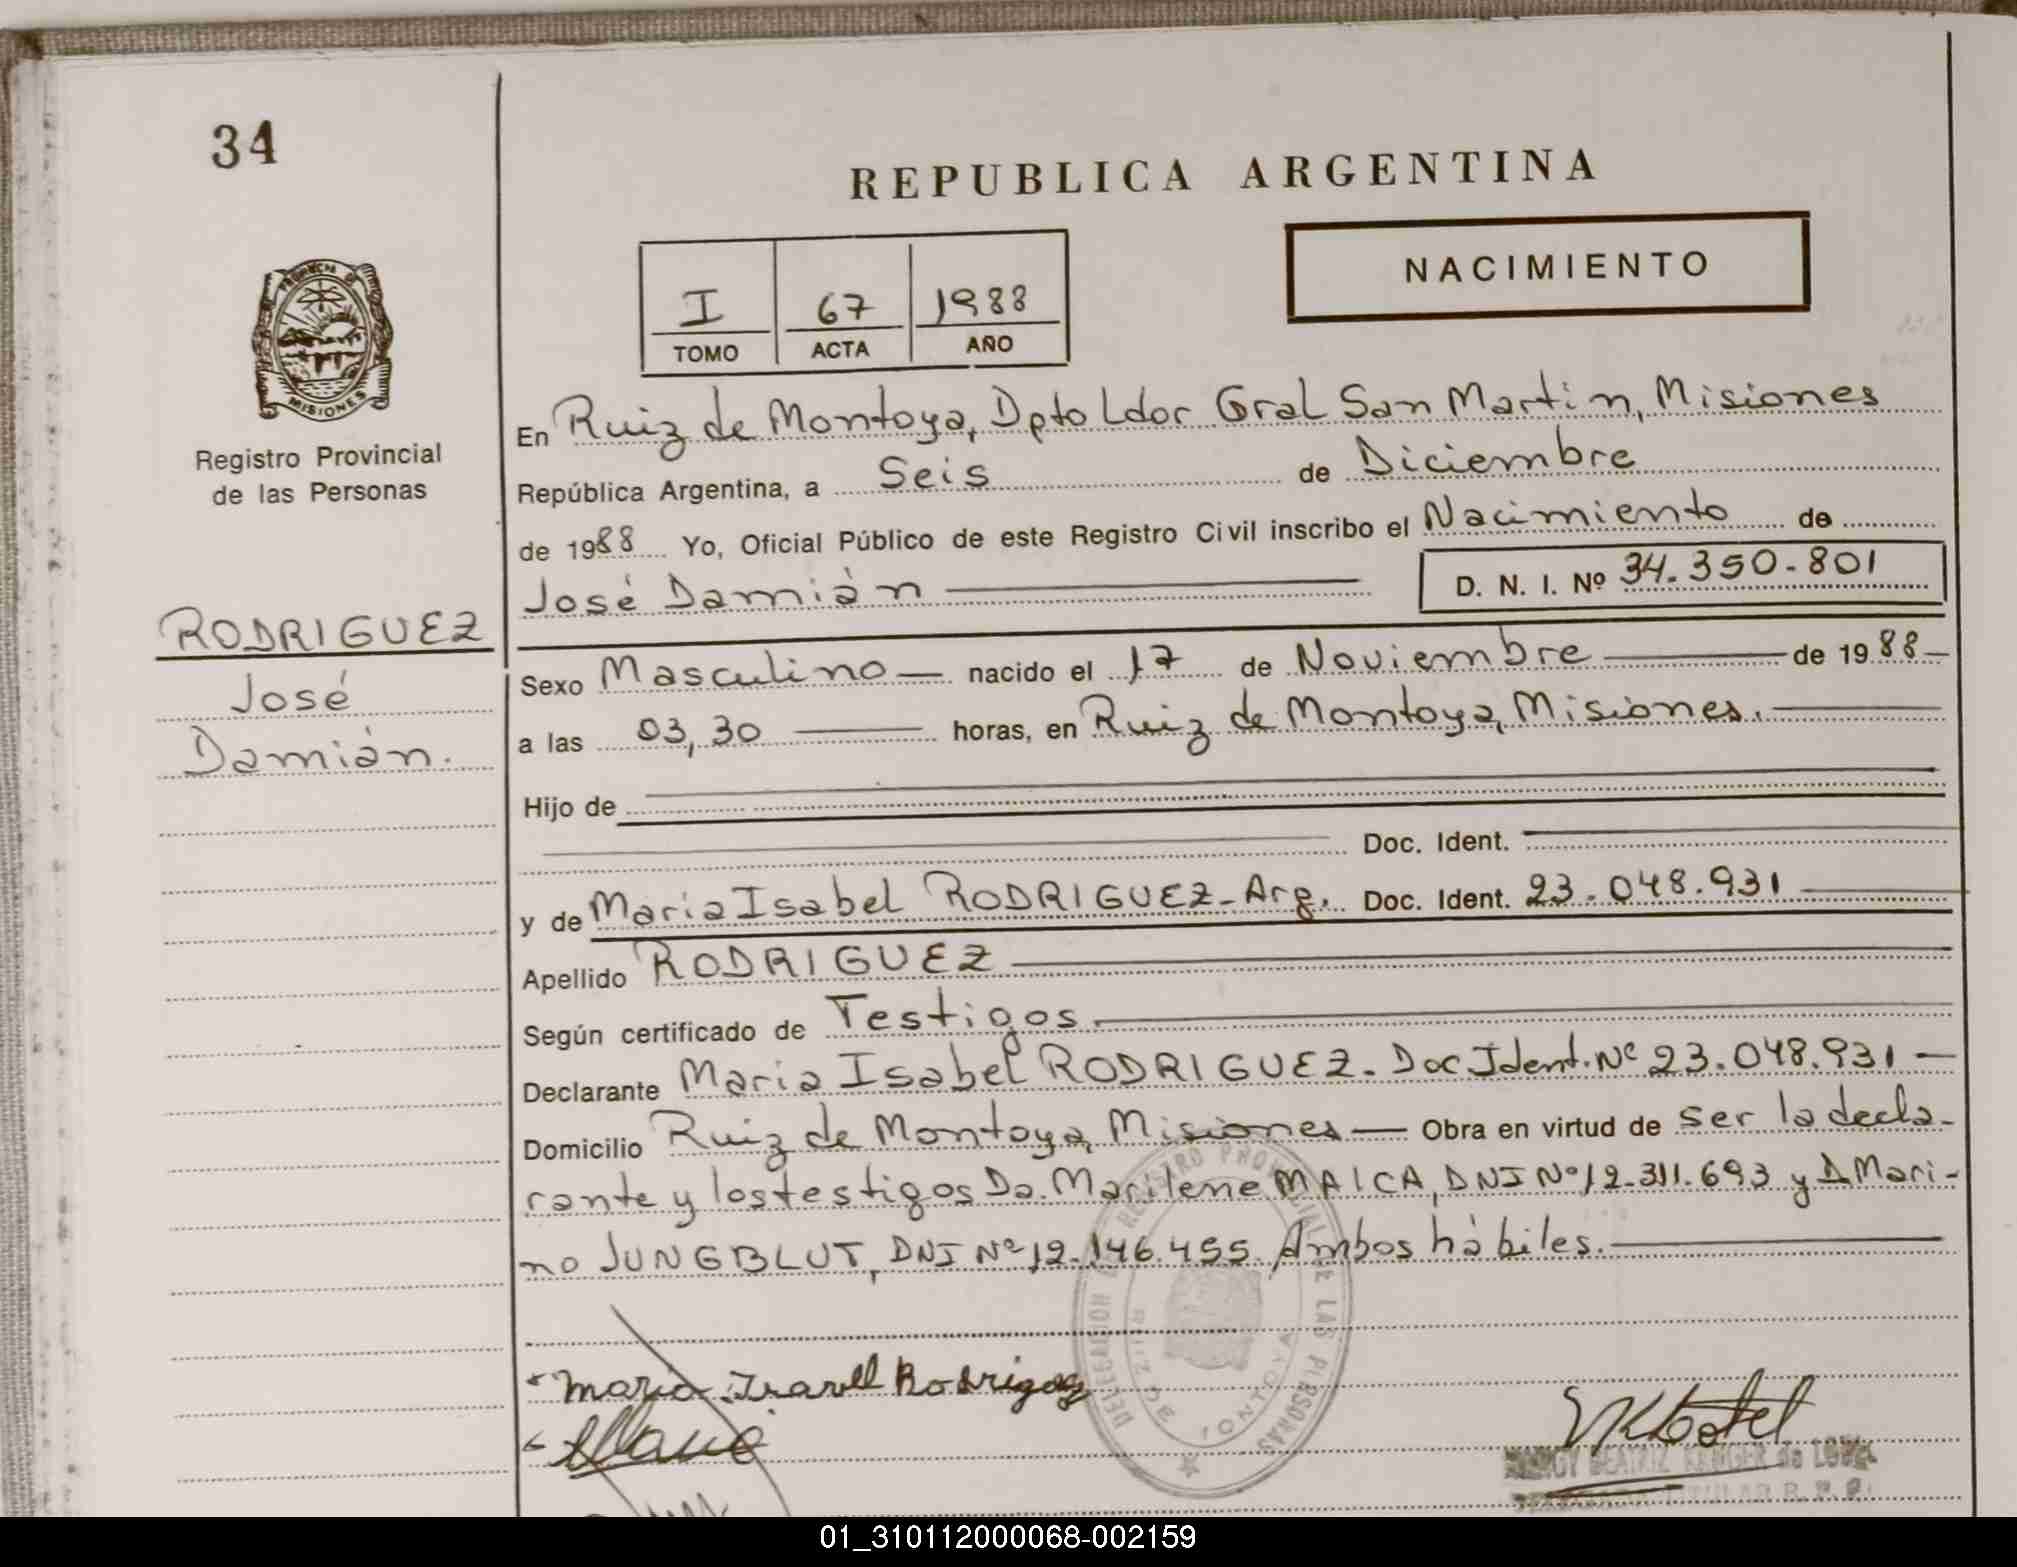 34
REPUBLICA ARGENTINA
NACIMIENTO
I 67 1988
TOMO ACTA AÑO
PROVINCIA DE
MISIONES
Registro Provincial
de las Personas
En Ruiz de Montoya, Dpto Ldor Gral San Martin, Misiones
República Argentina, a Seis de Diciembre
de 1988 Yo, Oficial Público de este Registro Civil inscribo el Nacimiento de
José Damián D. N. I. Nº 34.350.801
RODRIGUEZ
José
Damián.
Sexo Masculino — nacido el 17 de Noviembre — de 1988 —
a las 03,30 — horas, en Ruiz de Montoya, Misiones. —
Hijo de
Doc. Ident.
y de Maria Isabel RODRIGUEZ - Arg. Doc. Ident. 23.048.931
Apellido RODRIGUEZ
Según certificado de Testigos.
Declarante Maria Isabel RODRIGUEZ. Doc Ident. Nº 23.048.931 —
Domicilio Ruiz de Montoya, Misiones — Obra en virtud de ser la decla-
rante y los testigos Da. Marilene MAICA, DNI Nº 12.311.693 y D. Mari-
no JUNGBLUT, DNI Nº 12.146.455. Ambos hábiles. —
DELEGACION REGISTRO PROVINCIAL DE LAS PERSONAS
RUIZ DE MONTOYA
Maria Isavell Rodrigez
BEATRIZ de
TITULAR R. P. P.
01_310112000068-002159